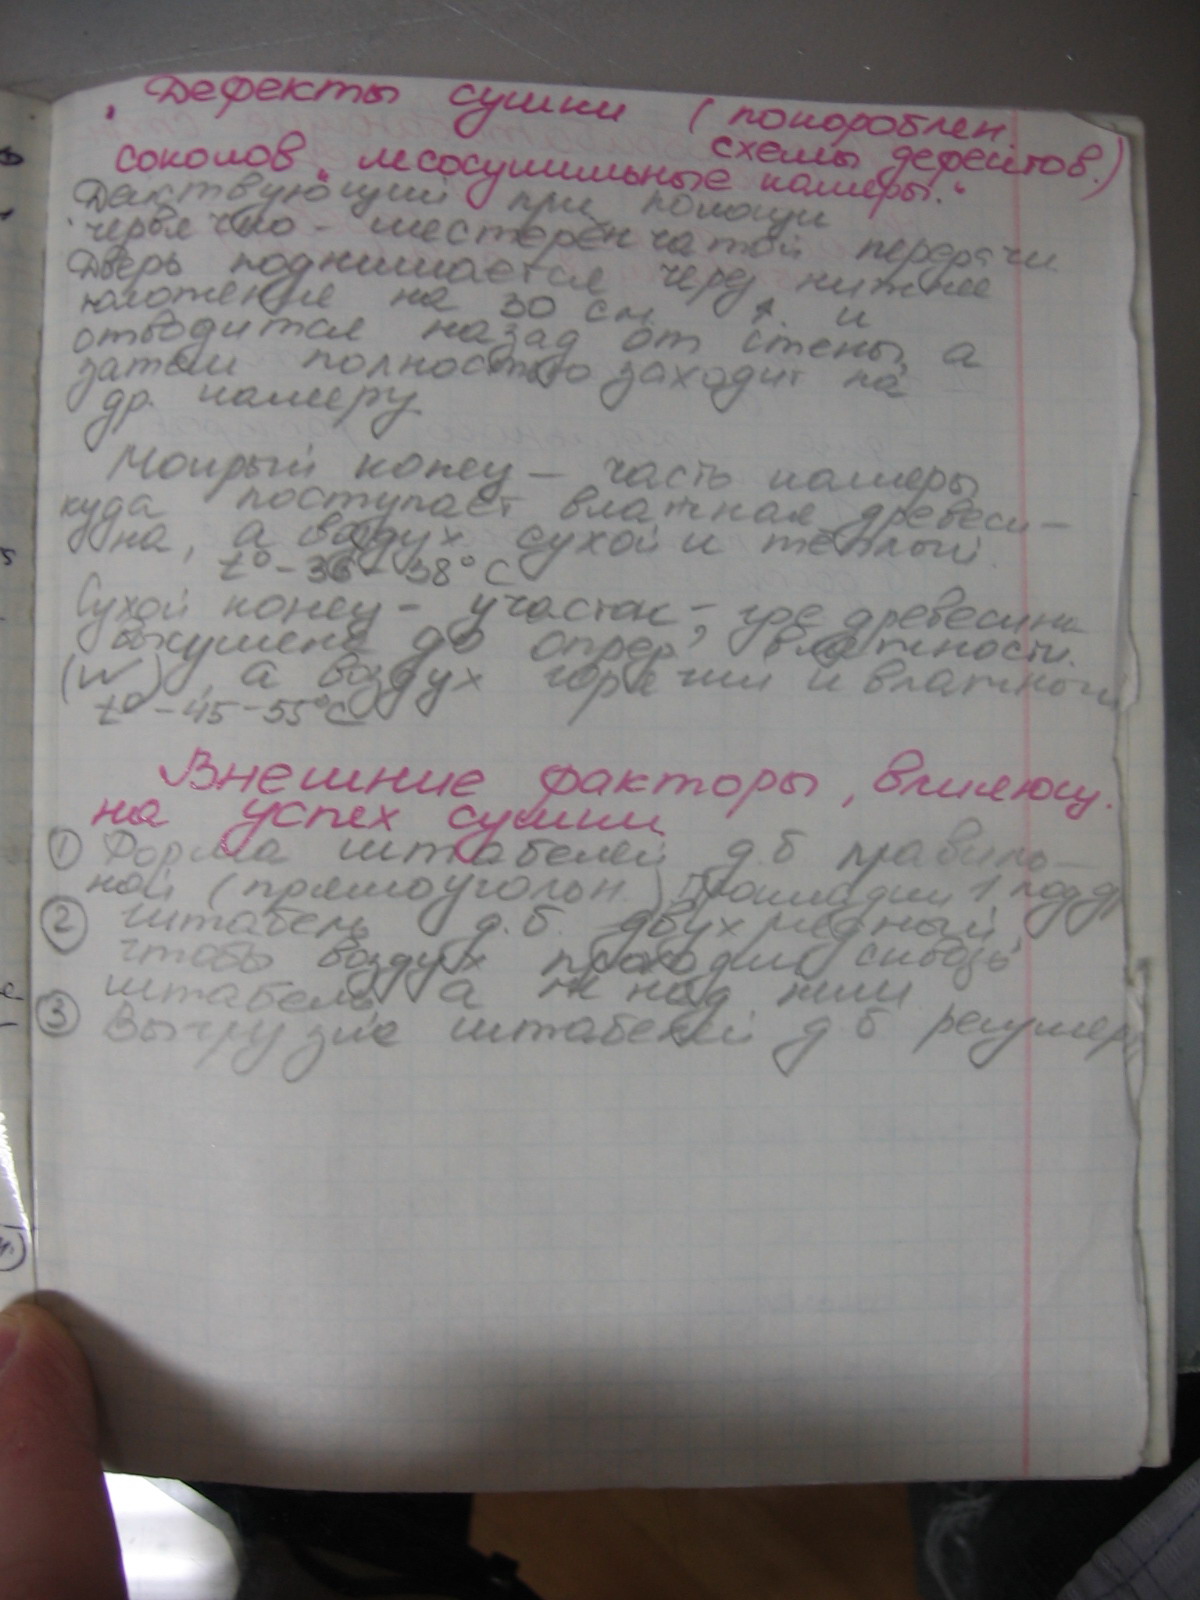 Дефекты сушки (покороблен
схемы дефектов.)
соколов "лесосушильные камеры."
Действующий при помощи
червячно - шестеренчатой передачи
Дверь поднимается через нижнее
положение на 30 см и
отводится назад от стены, а
затем полностью заходит на
др. камеру.
Мокрый конец - часть камеры
куда поступает влажная древеси-
на, а воздух сухой и теплый.
t° - 36 - 38°C
Сухой конец - участок, где древесина
высушена до опред. влажности
(W), а воздух горячий и влажный
t° - 45-55°C
Внешние факторы, влияющ.
на успех сушки
① Форма штабелей д.б правиль-
ной (прямоугольн.) Прокладки 1 под др
② штабель д.б. двухрядный
чтобы воздух проходил сквозь
штабель, а не над ним
③ Выгрузка штабелей д б регуляр